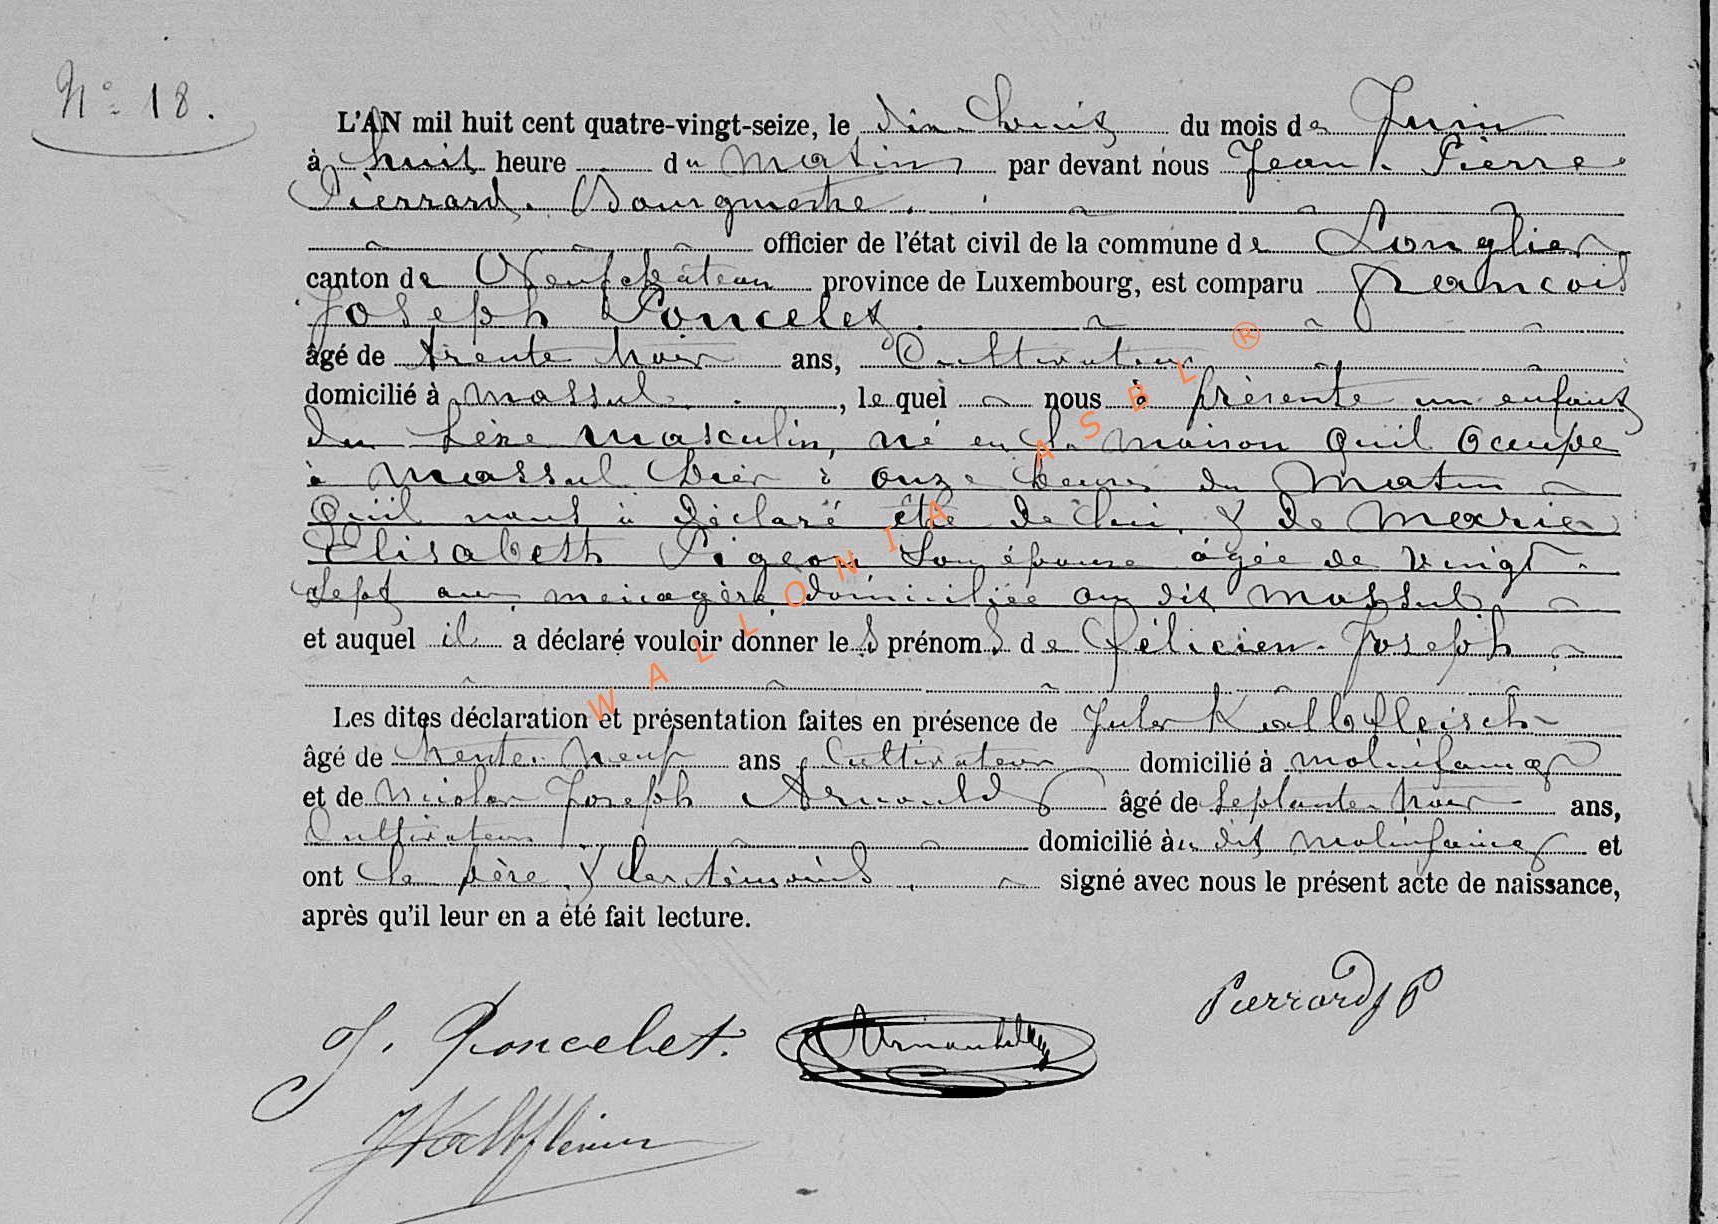 N° 18.
L'AN mil huit cent quatre-vingt-seize, le dix huit du mois de Juin
à huit heure du matin par devant nous Jean Pierre
Pierrard. Bourgmestre.
officier de l'état civil de la commune de Longlier
canton de Neufchâteau province de Luxembourg, est comparu François
Joseph Poncelet
âgé de trente trois ans, Cultivateur
domicilié à Massul, le quel nous à présenté un enfant
du sèxe masculin, né en la maison qu'il occupe
à Massul hier à onze heures du matin
qu'il nous à déclaré être de lui & de Marie
Elisabeth Pigeon, son épouse âgée de vingt
sept ans, menagère, domiciliée au dit Massul
et auquel il a déclaré vouloir donner les prénoms de Félicien Joseph
Les dites déclaration et présentation faites en présence de Jules Kalbfleisch
âgé de trente neuf ans Cultivateur domicilié à Molinfaing
et de Nicolas Joseph Arnould âgé de septante trois ans,
Cultivateur domicilié àu dit Molinfaing et
ont le père & les témoins signé avec nous le présent acte de naissance,
après qu'il leur en a été fait lecture.
Pierrard JP
J. Poncelet. Arnould
J Kalbfleisch
WALLONIA ASBL ®